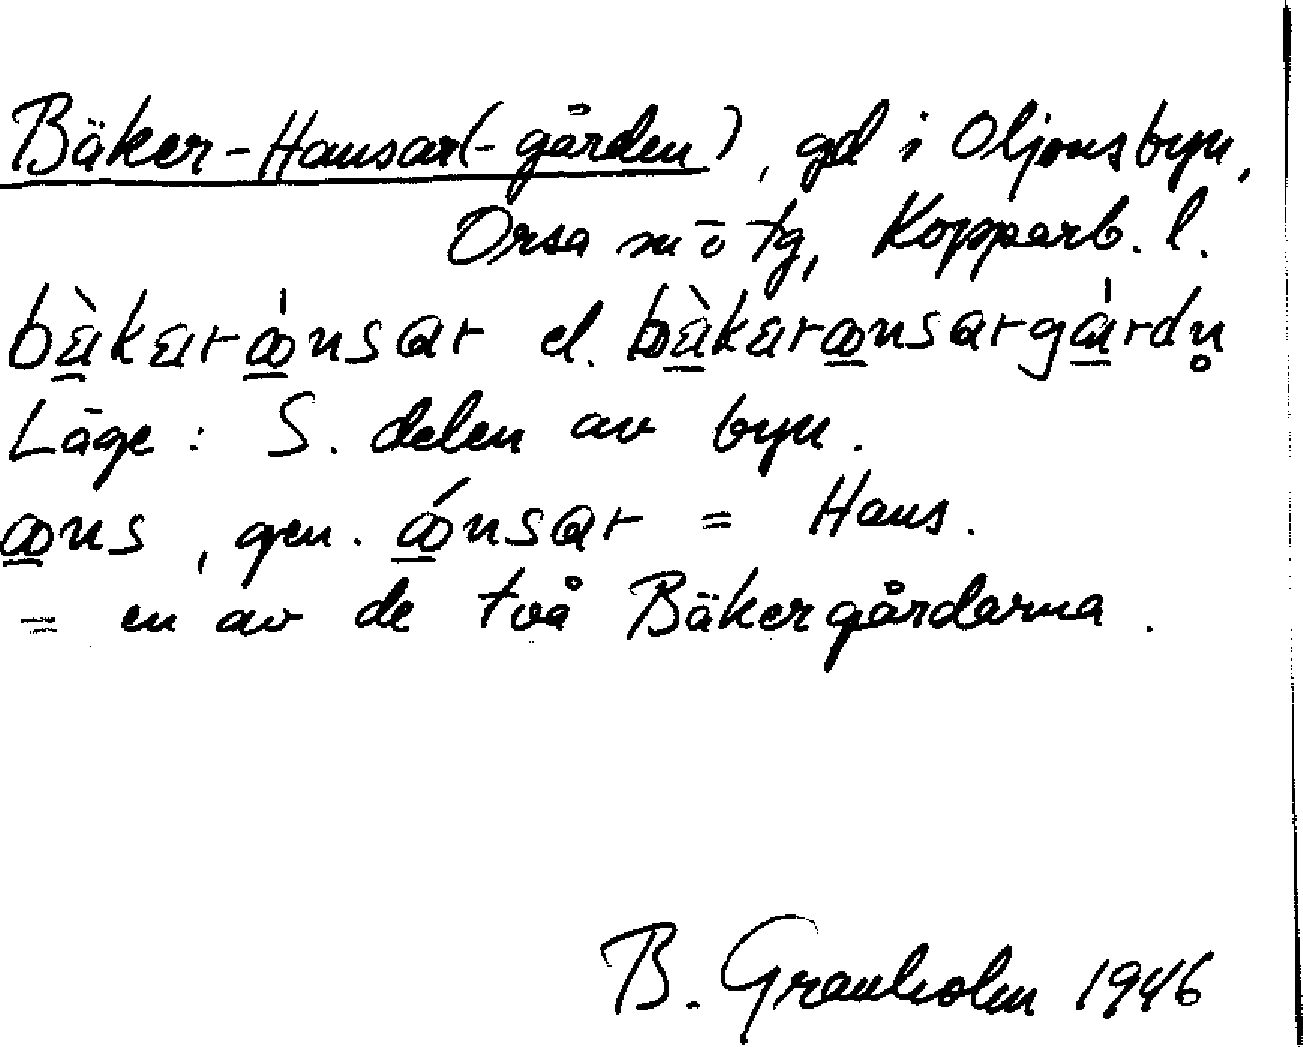 Bäker-Hansar(-gården), gd i Oljonsbyn,
Orsa sn o tg, Kopparb. l.
bæ̀kæræ̀nsar el. bæ̀kærænsargárdn̥
Läge: S. delen av byn.
ꜵns, gen. ꜵ́nsar = Hans.
= en av de två Bäkergårdarna.
B. Granholm 1946